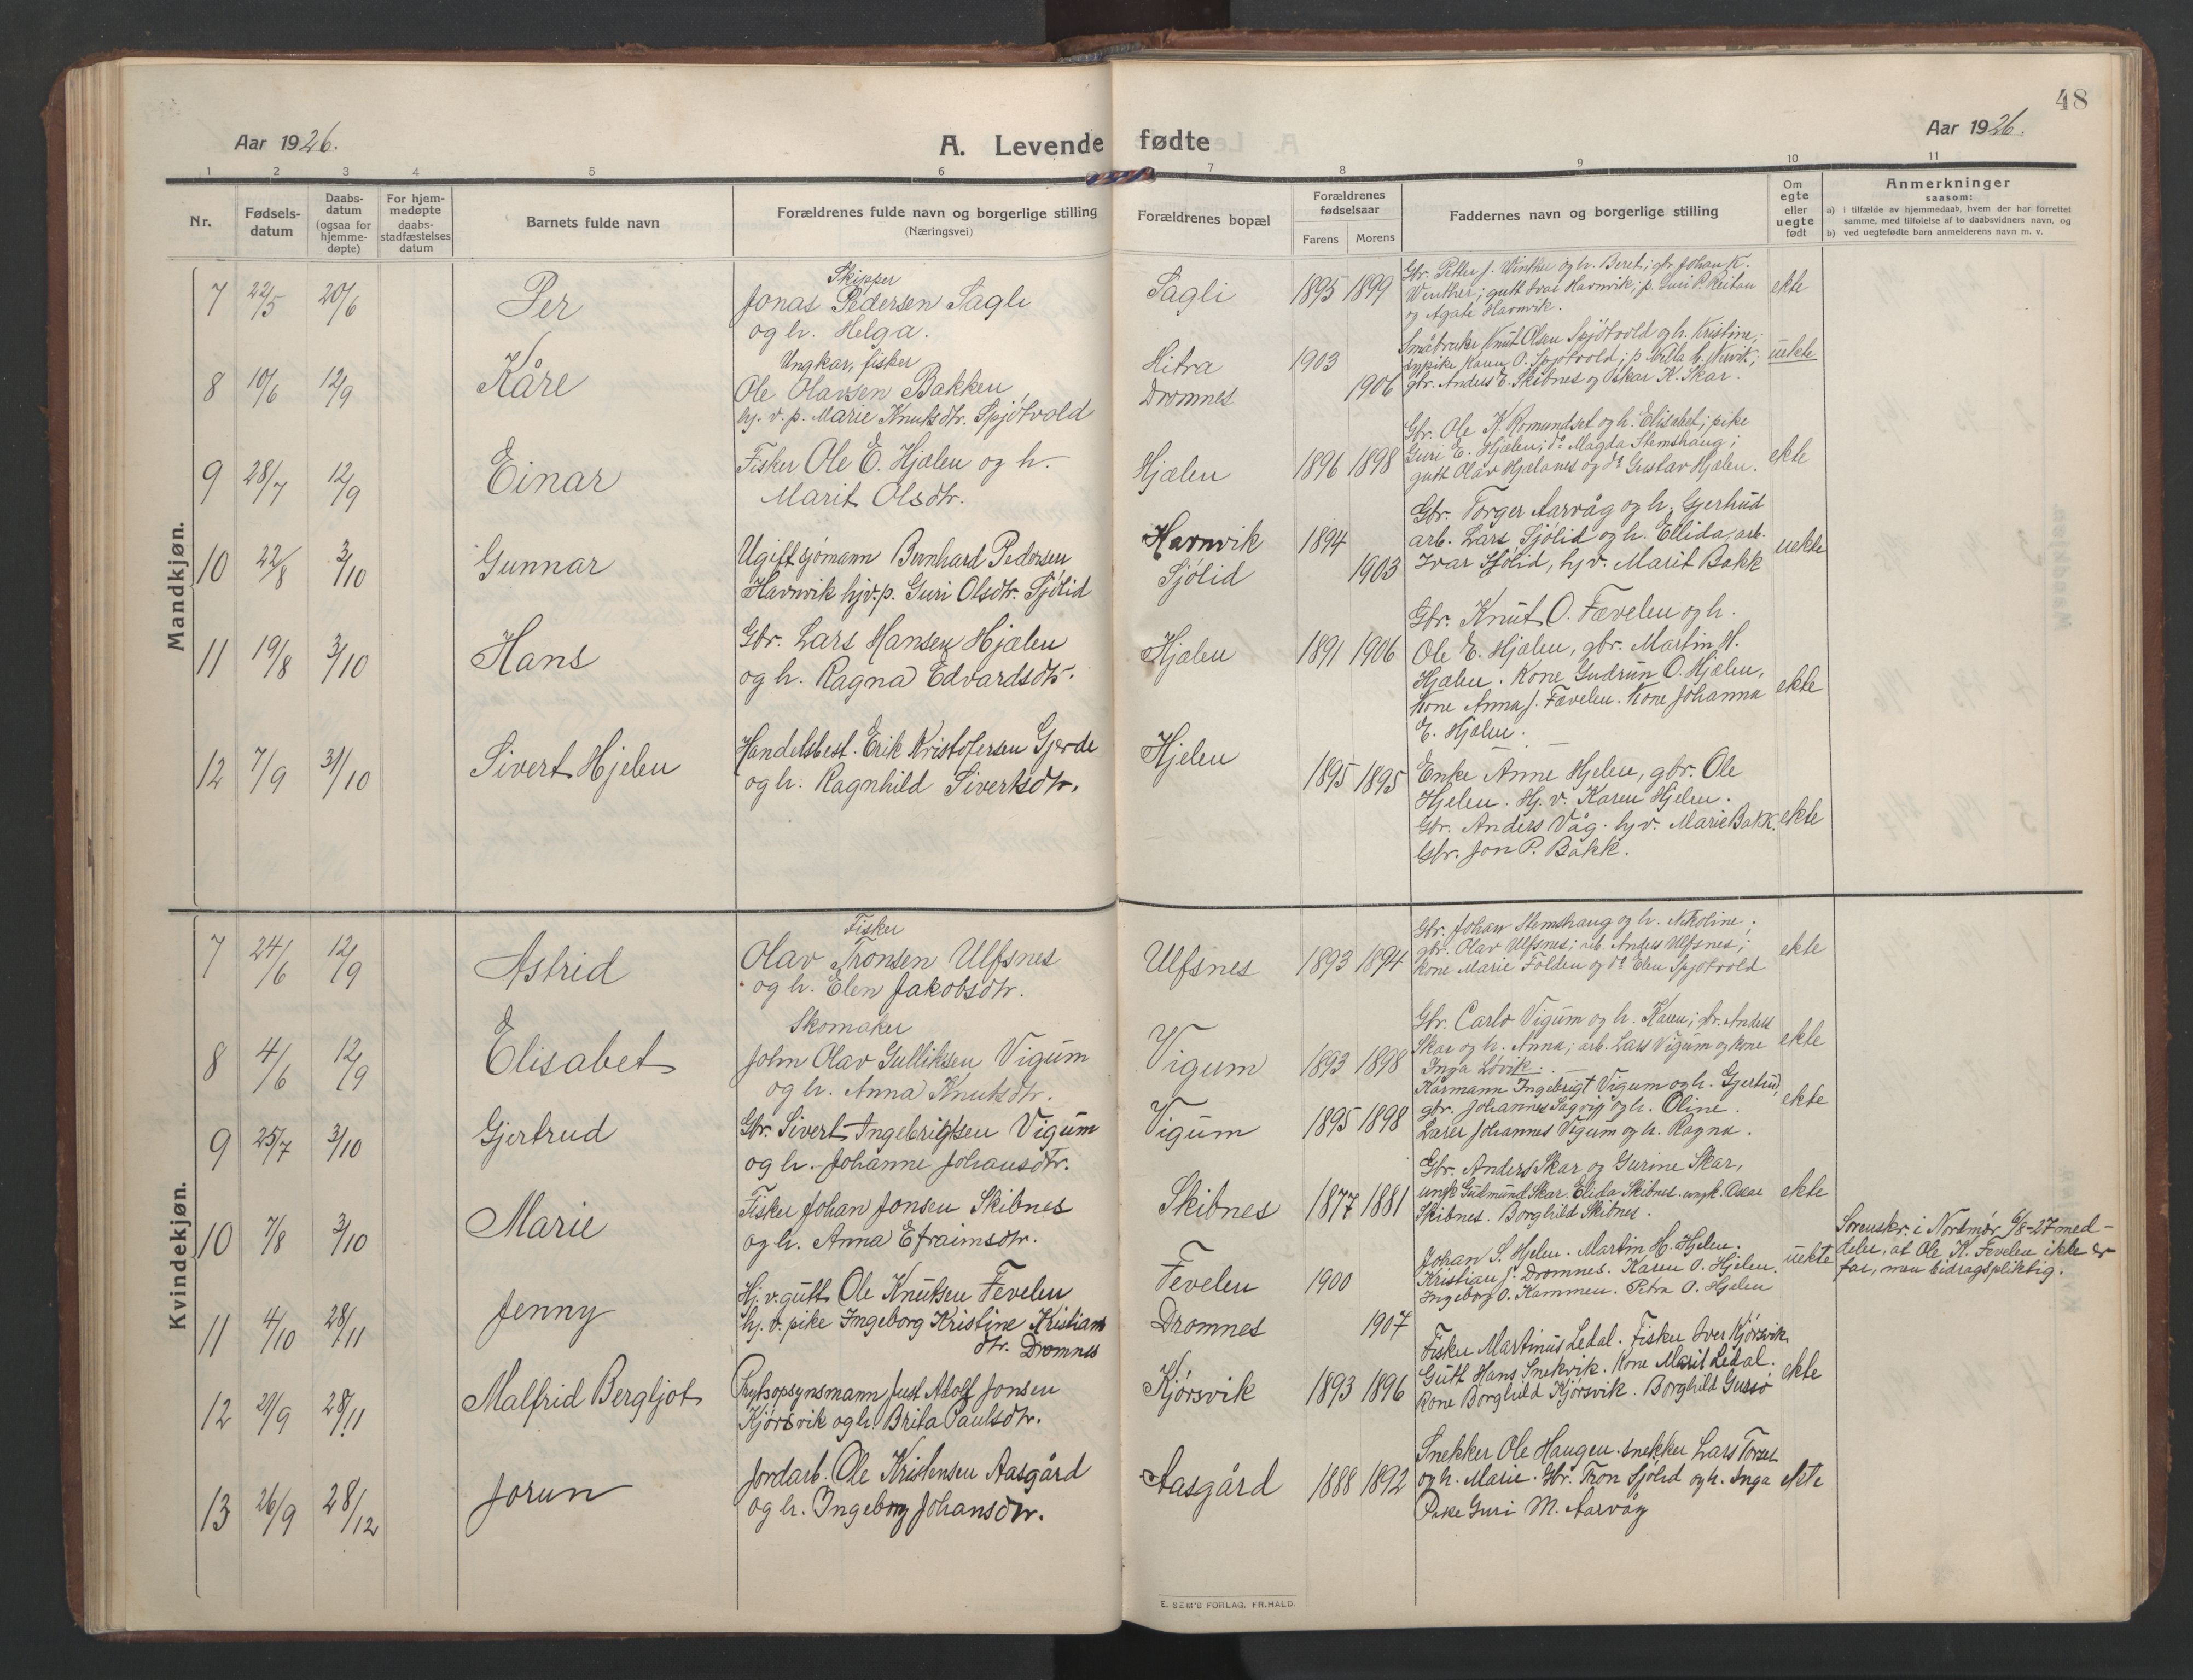 48
Aar 1926.
A. Levende fødte
Aar 1926.
1 2 3 4 5 6 7 8 9 10 11
Nr.
Fødsels-
datum
Daabs-
datum
(ogsaa for
hjemme-
døpte)
For hjem-
medøpte
daabs-
stadfæstelses
datum
Barnets fulde navn
Forældrenes fulde navn og borgerlige stilling
(Næringsvei)
Forældrenes bopæl
Forældrenes
fødselsaar
Farens Morens
Faddernes navn og borgerlige stilling
Om
egte
eller
uegte
født
Anmerkninger
saasom:
a) i tilfælde av hjemmedaab, hvem der har forrettet
samme, med tilføielse af to daabsvidners navn, og
b) ved uegtefødte barn anmelderens navn m. v.
Mandkjøn.
7 22/5 20/6 Per
Skipper
Jonas Pedersen Sagli
og h. Helga.
Sagli 1895 1899
Gbr. Petter J. Winther og h. Beret; gbr. Johan K.
Winther; gutt Ivar Havnvik; p. Guri P. Reitan
og Agate Havnvik.
ekte
8 10/6 12/9 Kåre
Ungkar, fisker
Ole Olavsen Bakken,
hj. v. p. Marie Knutsdtr. Spjötvold
Hitra 1903
Dromnes 1906
Småbruker Knut Olsen Spjötvold og h. Kristine;
sypike Karen O. Spjötvold; p.
gbr. Anders E. Skibnes og Oskar K. Skar.
uekte
9 28/7 12/9 Einar
Fisker Ole E. Hjælen og h.
Marit Olsdtr.
Hjælen 1896 1898
Gbr. Ole K. Romundset og h. Elisabet; pike
Guri E. Hjælen; do Magda Stemshaug;
gutt Olav Hjelanes og do Gustav Hjælen.
ekte
10 22/8 3/10 Gunnar
Ugift sjømann Bernhard Pedersen
Havnvik hjv. p. Guri Olsdtr. Sjölid
Havnvik 1894
Sjölid 1903
Gbr. Torger Aarvåg og h. Gjertrud
arb. Lars Sjölid og h. Ellida, arb.
Ivar Sjölid, hj v. Marit Bakk
uekte
11 19/8 3/10 Hans
Gbr. Lars Hansen Hjælen
og h. Ragna Edvardsdtr.
Hjælen 1891 1906
Gbr. Knut O. Fævelen og h.
Ole E. Hjælen, gbr. Martin H.
Hjælen. Kone Gudrun O. Hjælen,
Kone Anna J. Fævelen. Kone Johanna
E. Hjælen.
ekte
12 7/9 31/10 Sivert Hjelen
Handelsbest. Erik Kristofersen Gjerde
og h. Ragnhild Sivertsdtr.
Hjelen 1895 1895
Enke Anne Hjelen, gbr. Ole
Hjelen. Hj. v. Karen Hjelen.
Gbr. Anders Våg. hj v. Marie Bakk.
Gbr. Jon P. Bakk.
ekte
Kvindekjøn.
7 24/6 12/9 Astrid
Fisker
Olav Tronsen Ulfsnes
og h. Elen Jakobsdtr.
Ulfsnes 1893 1894
Gbr. Johan Stemshaug og h. Nikoline;
gbr. Olav Ulfsnes; arb. Anders Ulfsnes;
kone Marie Folden og do Elen Spjötvold
ekte
8 4/6 12/9 Elisabet
Skomaker
John Olav Gulliksen Vigum
og h. Anna Knutsdtr.
Vigum 1893 1898
Gbr. Carlo Vigum og h. Karen; gbr. Anders
Skar og h. Anna; arb. Lars Vigum og kone
Inga Løvik.
ekte
9 25/7 3/10 Gjertrud
Gbr. Sivert Ingebrigtsen Vigum
og h. Johanne Johansdtr.
Vigum 1895 1898
Kårmann Ingebrigt Vigum og h. Gjertrud,
gbr. Johannes Sagvik og h. Oline.
Lærer Johannes Vigum og h. Ragna.
ekte
10 7/8 3/10 Marie
Fisker Johan Jonsen Skibnes
og h. Anna Efraimsdtr.
Skibnes 1877 1881
Gbr. Anders Skar og Gurine Skar,
ungk Gudmund Skar. Elida Skibnes. ungk. Oskar
Skibnes. Borghild Skibnes.
ekte
11 4/10 28/11 Jenny
Hj. v. gutt Ole Knutsen Fevelen
hj. v. pike Ingeborg Kristine Kristians
dtr. Dromnes
Fevelen 1900
Dromnes 1907
Johan S. Hjelen. Martin H. Hjelen.
Kristian J. Dromnes. Karen O. Hjelen.
Ingeborg O. Kammen. Petra O. Hjelen
uekte
Sorenskr. i Nordmør 6/8-27 med-
deler, at Ole K. Fevelen ikke er
far, men bidragspliktig.
12 29/9 28/11 Malfrid Bergljot
Brytsopsynsmann Just Adolf Jonsen
Kjörsvik og h. Brita Paulsdtr.
Kjörsvik 1893 1896
Fisker Martinus Ledal. Fisker Iver Kjörsvik
Gutt Hans Snekvik. Kone Marit Ledal.
Kone Borghild Kjörsvik. Borghild Gursö
ekte
13 26/9 28/12 Jorun
Jordarb. Ole Kristensen Aasgård
og h. Ingeborg Johansdtr.
Aasgård 1888 1892
Snekker Ole Haugen. snekker Lars Torset
og h. Marie. Gbr. Tron Sjölid og h. Inga
Pike Guri M. Aarvåg
ekte
E. SEM'S FORLAG, FR.HALD.